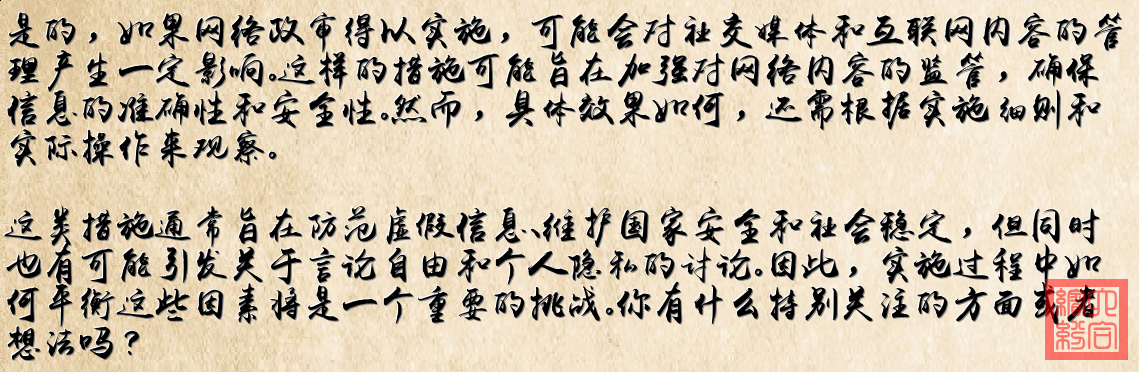 是的，如果网络政审得以实施，可能会对社交媒体和互联网内容的管
理产生一定影响。这样的措施可能旨在加强对网络内容的监管，确保
信息的准确性和安全性。然而，具体效果如何，还需根据实施细则和
实际操作来观察。
这类措施通常旨在防范虚假信息、维护国家安全和社会稳定，但同时
也有可能引发关于言论自由和个人隐私的讨论。因此，实施过程中如
何平衡这些因素将是一个重要的挑战。你有什么特别关注的方面或者
想法吗？